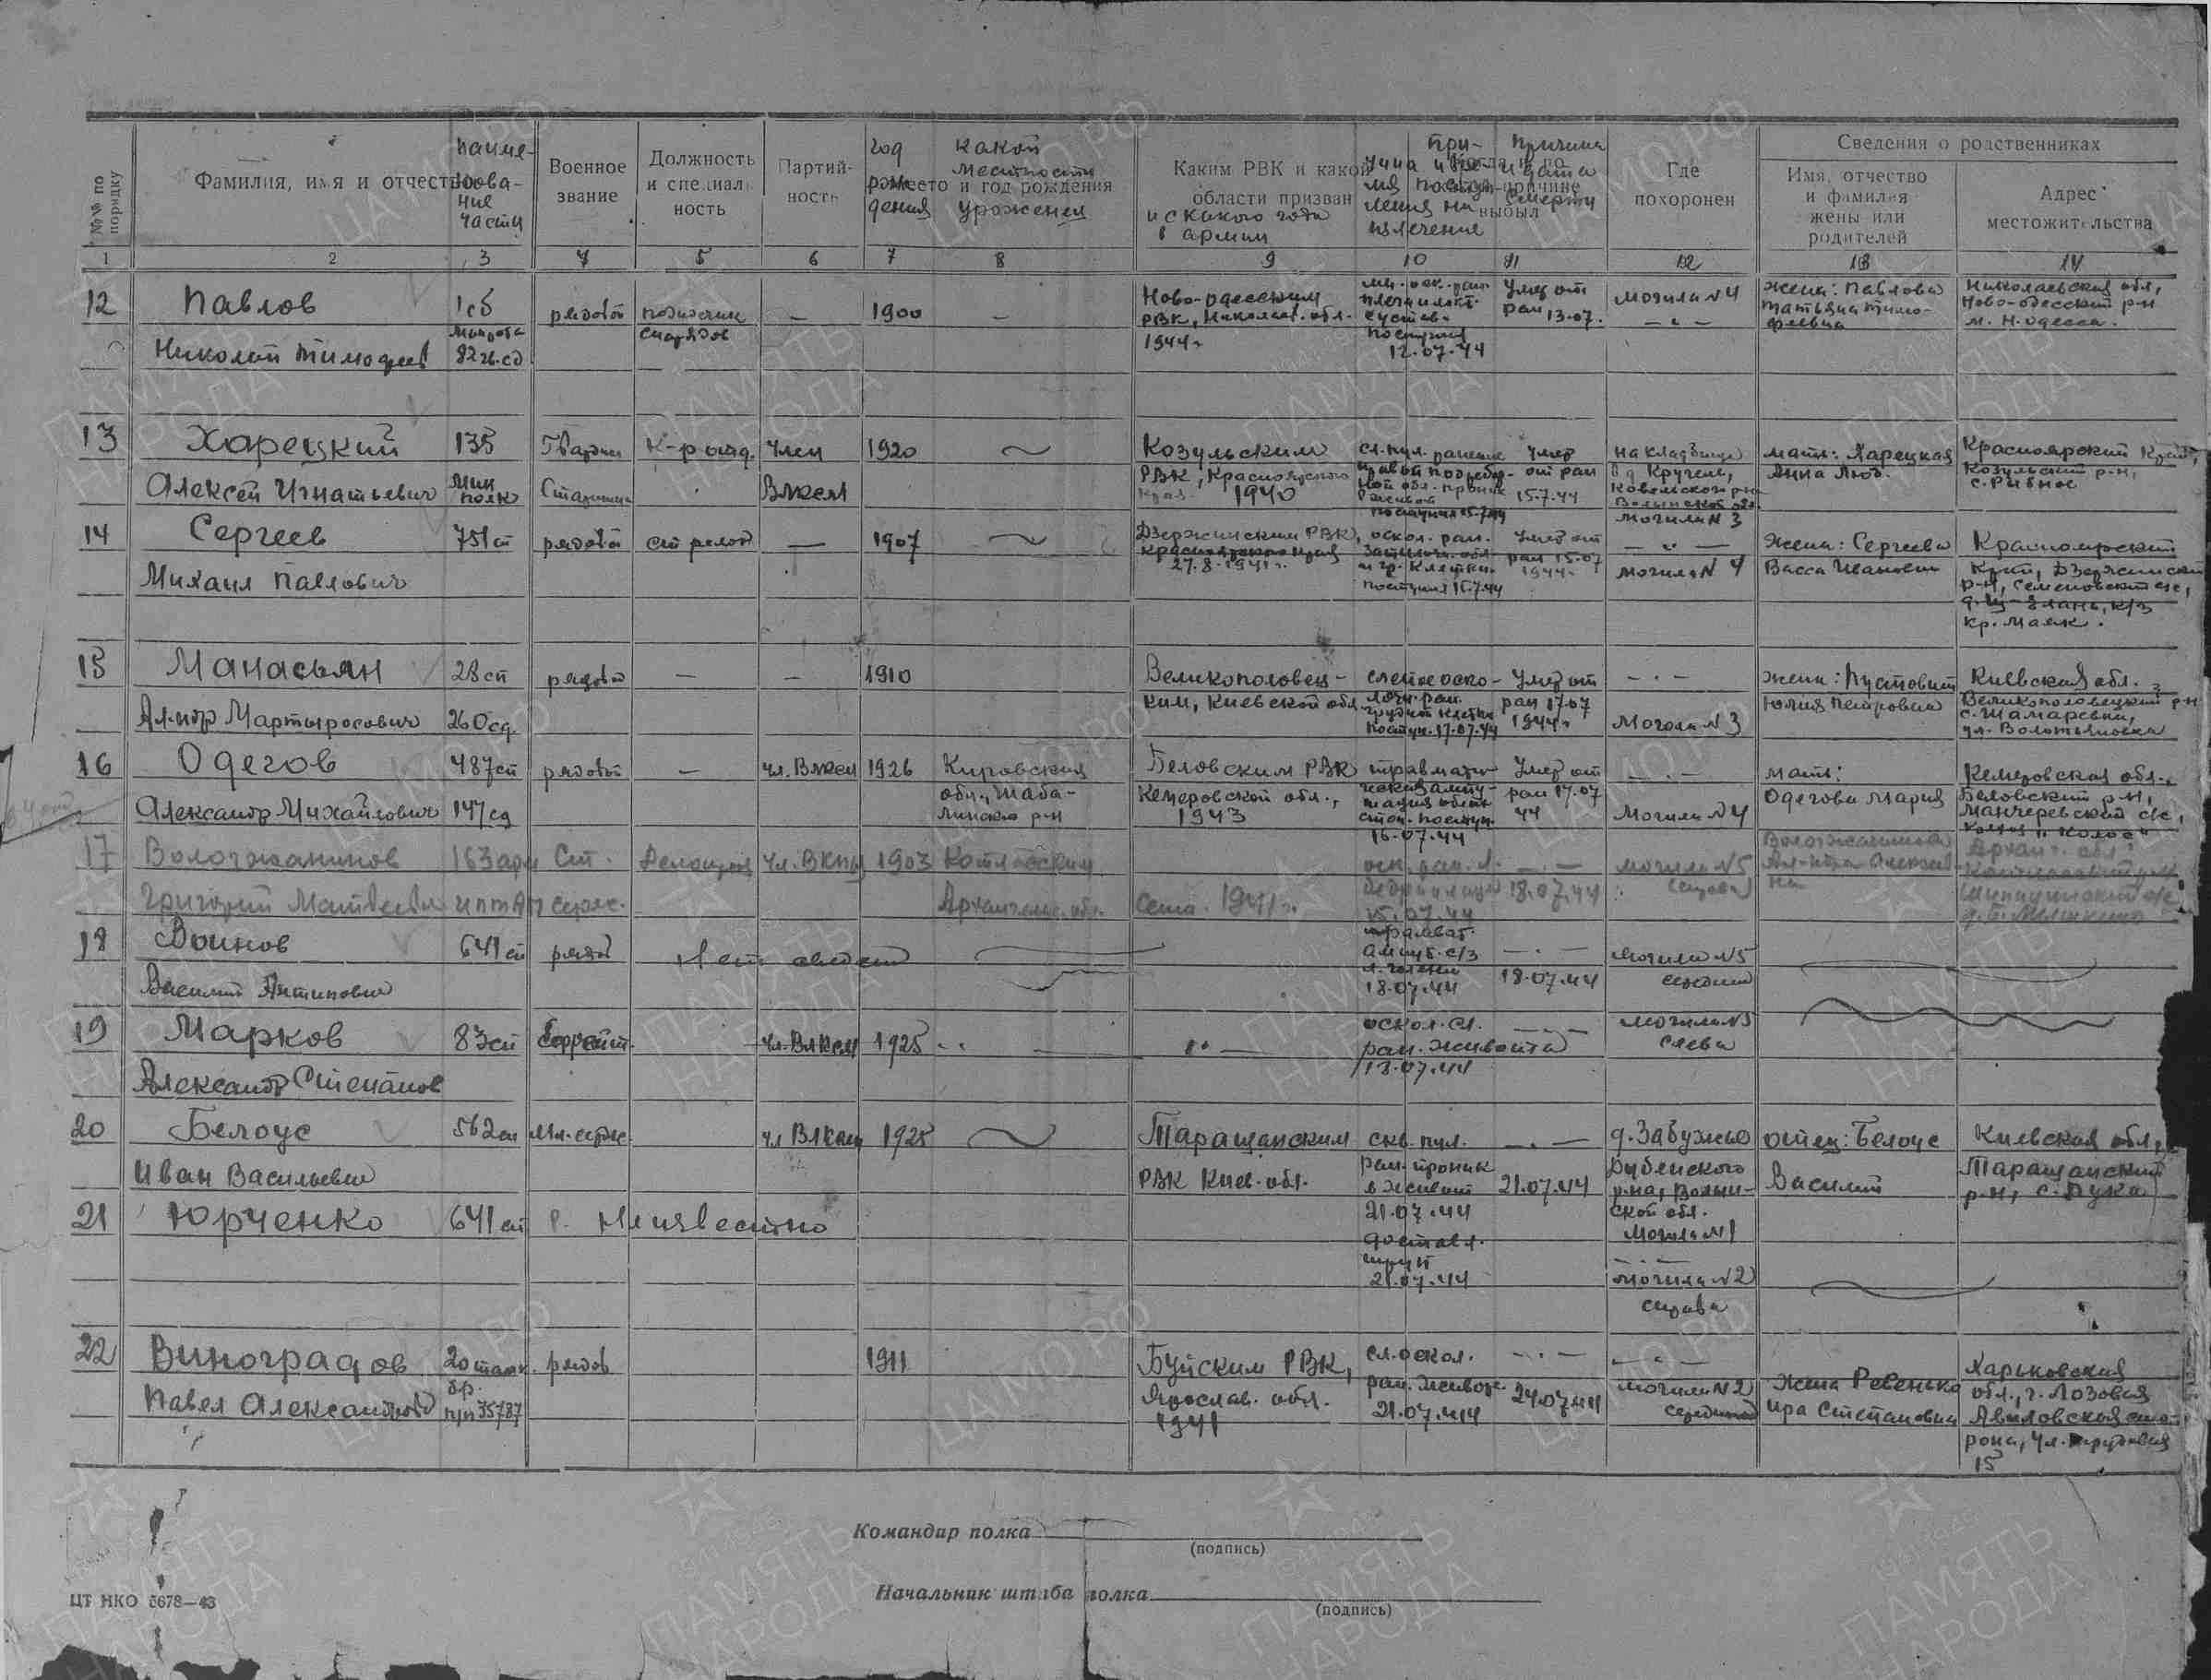 №№ по порядку
Фамилия, имя и отчество
Наименование части
Военное звание
Должность и специальность
Партийность
год рождения
Место и год рождения
какой местности уроженец
Каким РВК и какой области призван
и с какого года в армии
Когда и по какой причине выбыл
Причина и дата смерти
Где похоронен
Сведения о родственниках
Имя, отчество и фамилия жены или родителей
Адрес местожительства
1 2 3 4 5 6 7 8 9 10 11 12 13 14
12 Павлов 1сб рядовой подносчик — 1900 — Ново-одесским Умер от Могила N4 жена: Павлова Николаевская обл,
снарядов РВК, Николаев. обл. ран 13.07. — „ — Татьяна Тимо- Ново-одесский р-н
Николай Тимофеев 82 гв.сд 1944г поступил феевна м. Н.одесса.
12.07.44
13 Харецкий 135 Гвардии К-р отд. член 1920 Козульским сл. пул. ранение Умер на кладбище мать: Харецкая Красноярский Край,
Алексей Игнатьевич мин полк Старшина ВЛКСМ РВК, Красноярского края 1940 от ран 15.7.44 д Кругель, Анна Люб. Козульский р-н,
Ковельского р-на с. Рыбное
Волынской обл.
поступил 15.7.44 Могила N 3
14 Сергеев 751сп рядовой стрелок — 1907 Дзержинским РВК, оскол. ран. Умер от — „ — жена: Сергеева Красноярский
Красноярского края ран 15.07
27.8.1941г. и гр. клетки. 1944г Могила N 4 Васса Ивановн Край, Дзержинский
Михаил Павлович поступил 15.7.44 р-н, Семеновский с/с,
к/з
кр. Маяк.
15 Манасьян 28сп рядовой — — 1910 Великополовец- слепое оско- Умер от — „ — жена: Пустовит Киевская обл.
ким, Киевской обл. лочн. ран. ран 17.07 Юлия Петровна Великополовецкий р-н
Ал-ндр Мартыросович 260сд. грудной клетки 1944г Могила N3 с. Шамаревка,
поступ. 17.07.44
16 Одегов 487сп рядовой — чл. ВЛКСМ 1926 Кировская Беловским РВК травмати- Умер от — „ — мать: Кемеровская обл.,
обл., Шаба- Кемеровской обл., ческая ампу- ран 17.07 Одегова Мария Беловский р-н,
Александр Михайлович 147сд линский р-н 1943 тация обеих 44 Могила N4 Манчеревский с/с,
стоп. поступ. колхоз „Колос"
16.07.44
17 Вологжанинов 163 Ст. чл. ВКПб 1903 Котласский оск. ран. л. — „ — могила N5 Архан. обл.
Григорий Матвеевич иптап серж. Архангельс. обл. Сент. 1941г. 18.07.44 справа
15.07.44
18 Воинов 641сп рядов травмат. — „ — могила N5
ампут. с/з
Василий Антипович л. голени 18.07.44 середина
18.07.44
19 Марков 83сп Ефрейт. чл. ВЛКСМ 1925 — „ — оскол. сл. — „ — могила N5
ран. живота слева
Александр Степанов 18.07.44
20 Белоус 562сп Мл. серж. чл ВЛКСМ 1925 Таращанским скв. пул. — „ — д. Забужье отец: Белоус Киевская обл,
Иван Васильевич РВК Киев. обл. ран. проник в живот 21.07.44 Дубенского р-на, Волын- Василий Таращанский р-н, с. Лука
21.07.44 ской обл.
Могила N1
21 Юрченко 641сп Р. Неизвестно доставл.
труп — „ —
21.07.44 могила N2
справа
22 Виноградов 20 танк. рядов 1911 Буйским РВК, сл. оскол. — „ — — „ — Харьковская
бр. ран. живота могила N2 Жена Ревенько обл., г. Лозовая
Павел Александров п/п 35787 Ярослав. обл. 21.07.44 24.07.44 середина Ира Степановна Авиловская
1941 15
Командир полка
(подпись)
Начальник штаба полка
(подпись)
ЦТ НКО 5678—43
ПАМЯТЬ НАРОДА
ЦАМО РФ